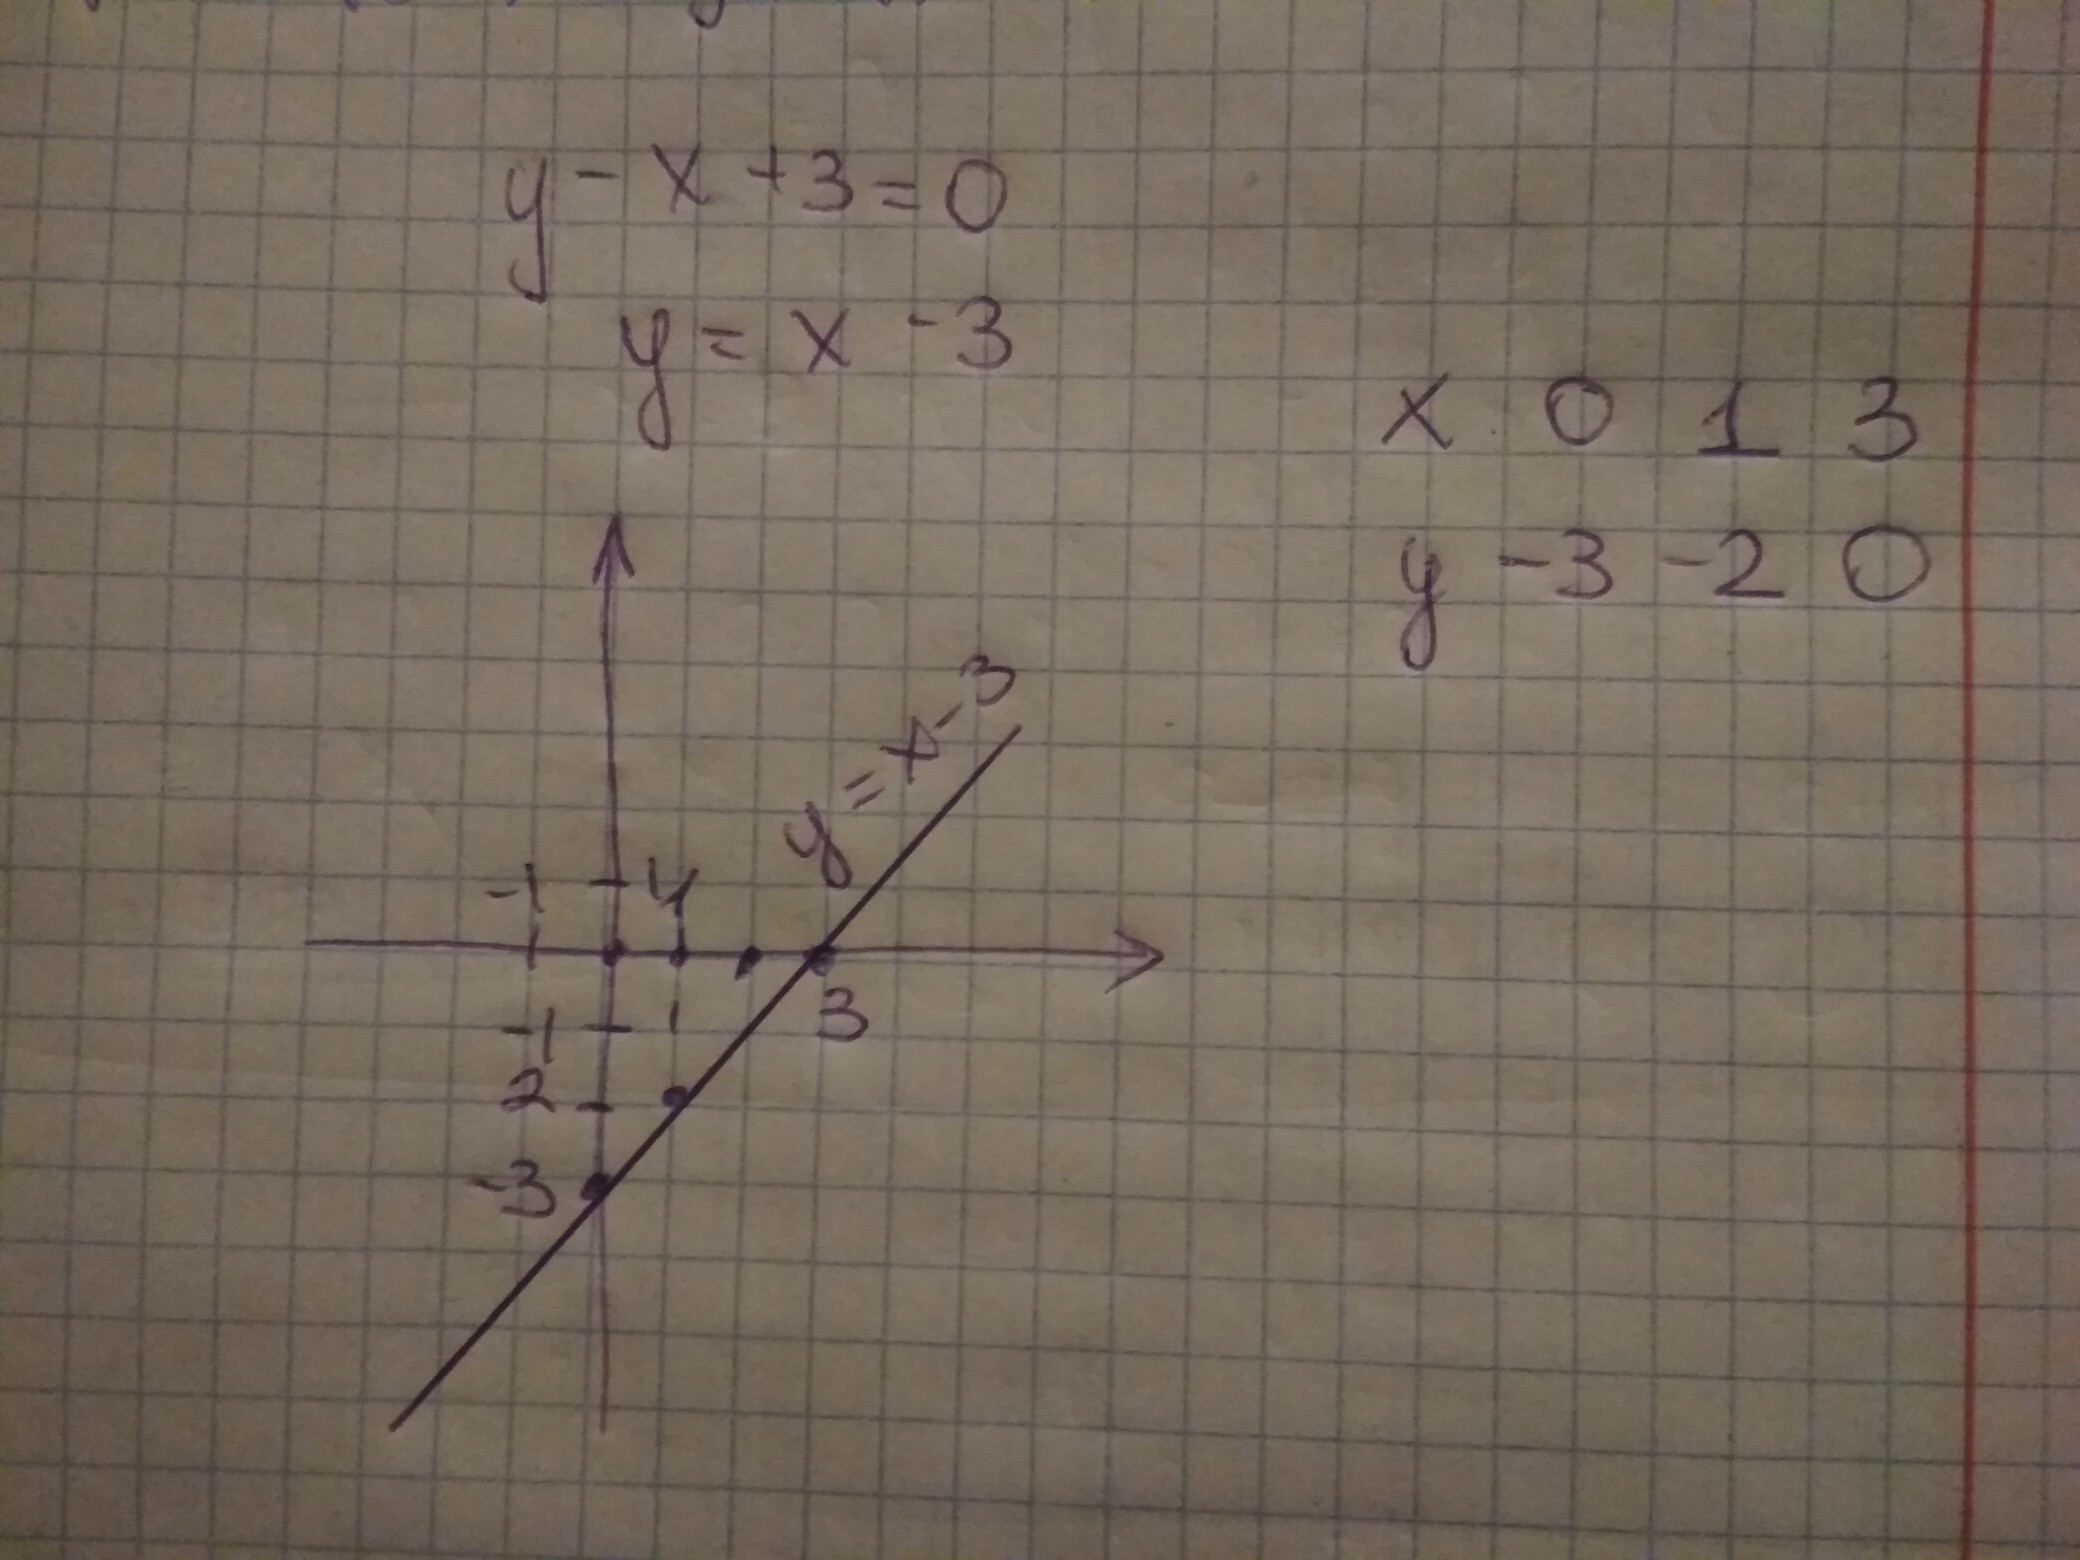 y - x + 3 = 0
y = x - 3
x 0 1 3
y -3 -2 0
y = x - 3
-1
-1 1
3
2
-3